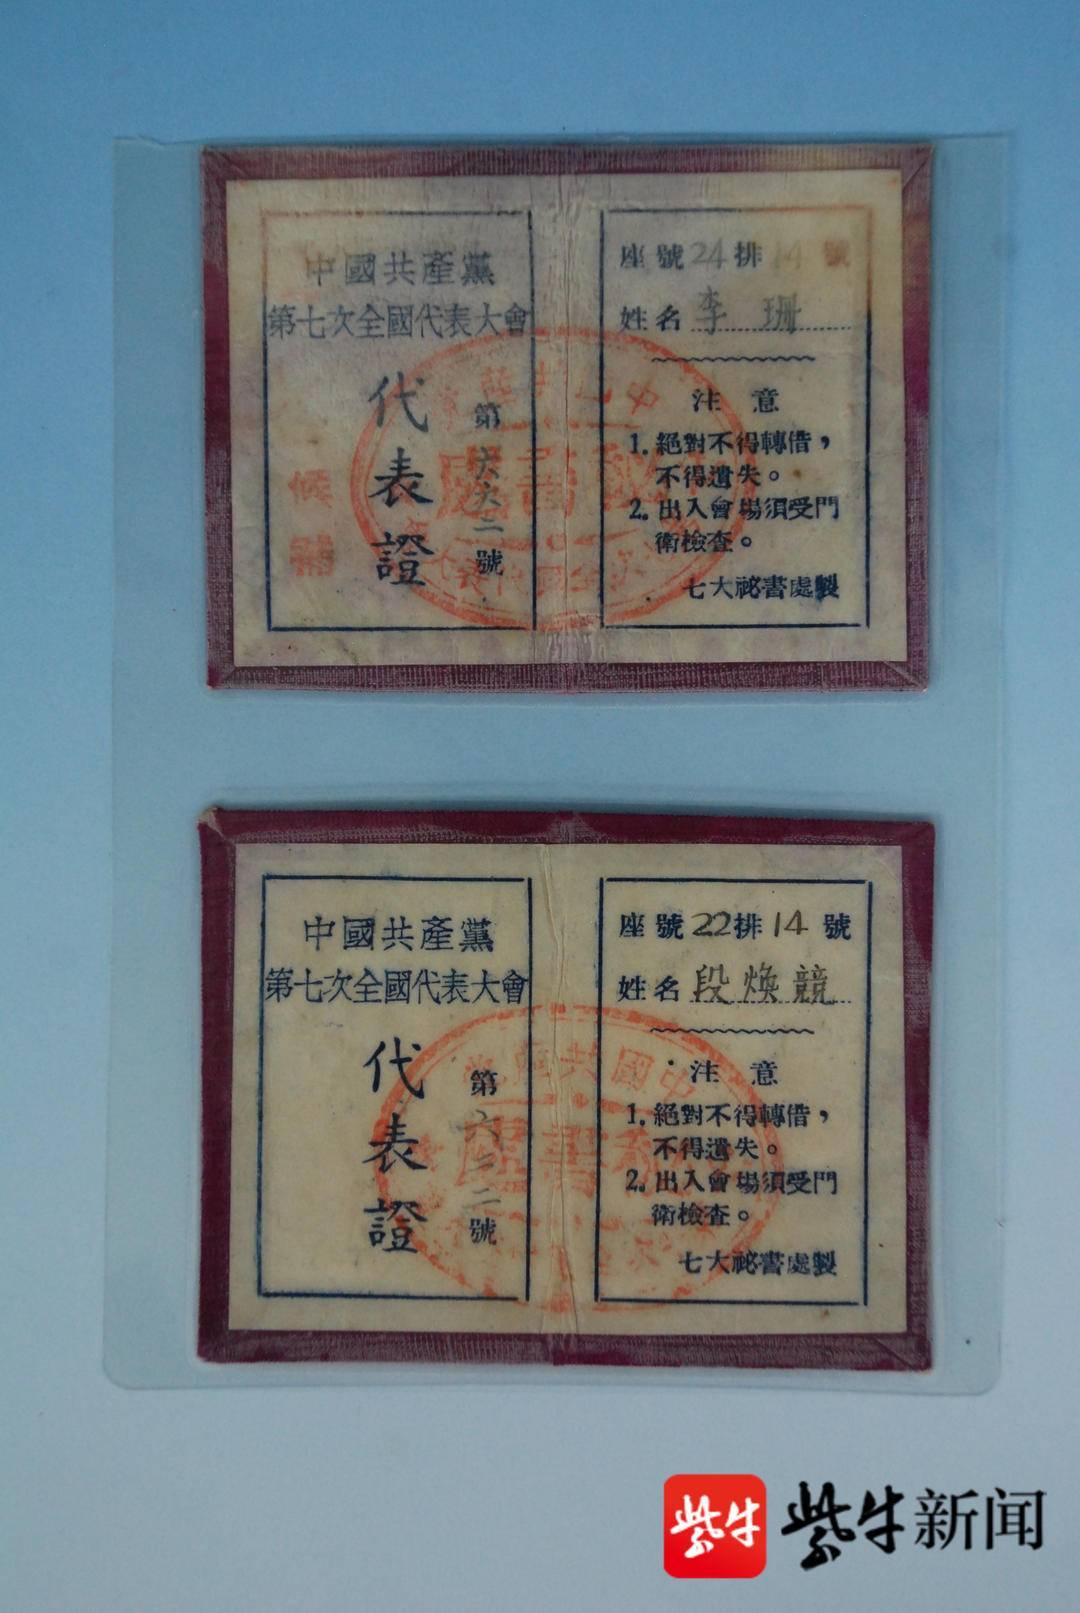 中國共產黨
第七次全國代表大會
代表證
第六六二號
候補
座號24排14號
姓名李珊
注意
1.絕對不得轉借，
不得遺失。
2.出入會場須受門
衛檢查。
七大祕書處製
中國共產黨
第七次全國代表大會
代表證
第六二二號
中國共產黨
祕書處
座號22排14號
姓名段焕競
注意
1.絕對不得轉借，
不得遺失。
2.出入會場須受門
衛檢查。
七大祕書處製
紫牛
紫牛新闻